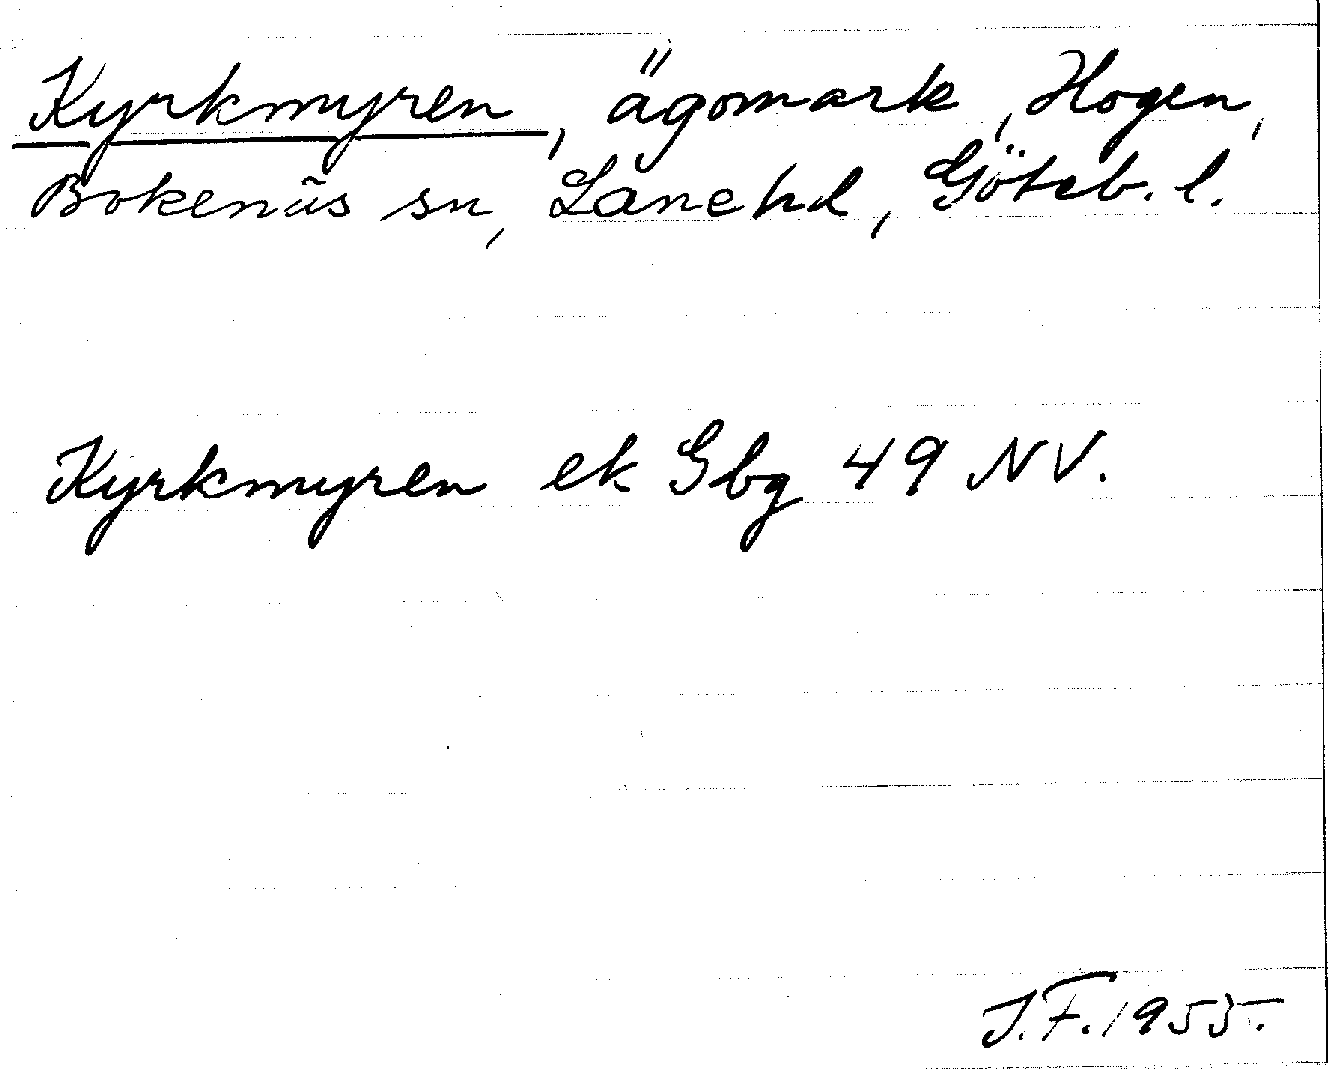 Kyrkmyren, ägomark, Hogen,
Bokenäs sn, Lane hd, Göteb. l.
Kyrkmyren ek Gbg 49 NV.
J.F. 1955.